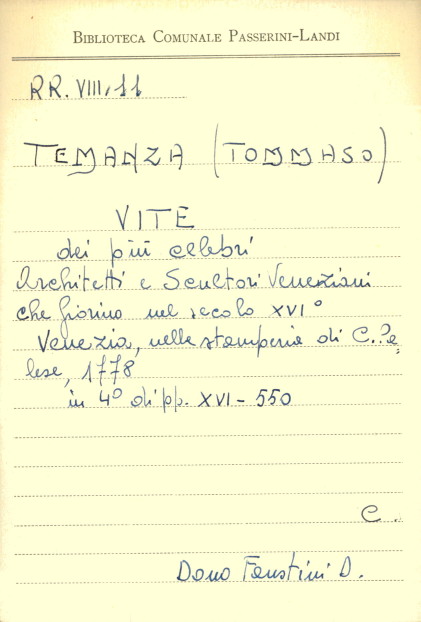 BIBLIOTECA COMUNALE PASSERINI-LANDI
RR. VIII, 11
TEMANZA (TOMMASO)
VITE
dei più celebri
Architetti e Scultori Veneziani
che fiorino nel secolo XVI°
Venezia, nelle stamperia di C. Pa
lese, 1778
in 4° di pp. XVI - 550
C.
Dono Faustini D.